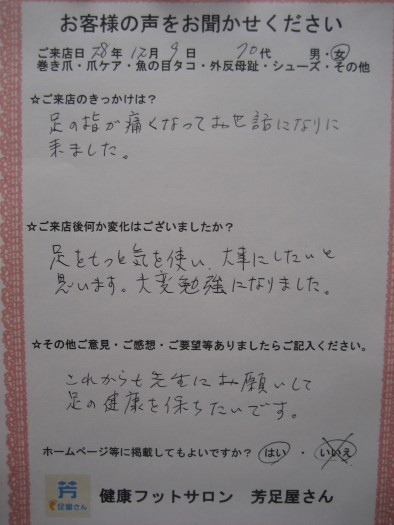 お客様の声をお聞かせください
ご来店日 28年 12月 9日 70代 男・女
巻き爪・爪ケア・魚の目タコ・外反母趾・シューズ・その他
☆ご来店のきっかけは？
足の指が痛くなってお世話になりに
来ました。
☆ご来店後何か変化はございましたか？
足をもっと気を使い、大事にしたいと
思います。大変勉強になりました。
☆その他ご意見・ご感想・ご要望等ありましたらご記入ください。
これからも先生にお願いして
足の健康を保ちたいです。
ホームページ等に掲載してもよいですか？ はい ・ いいえ
芳
足屋さん
健康フットサロン 芳足屋さん